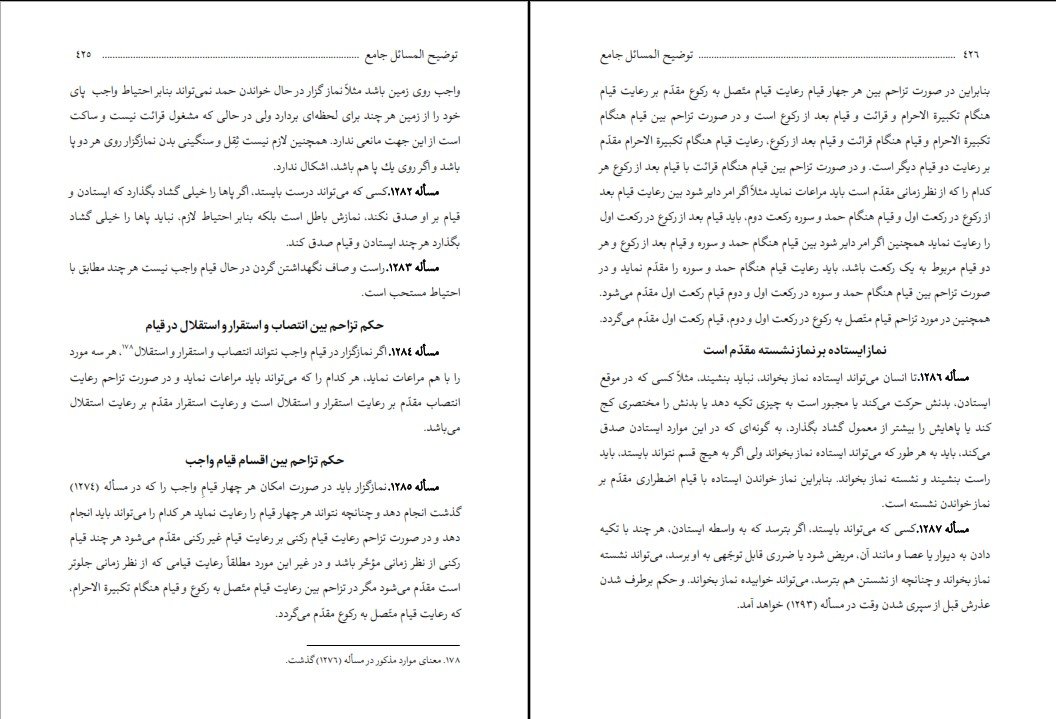 توضیح المسائل جامع ........................................ ٤٢٥
واجب روی زمین باشد مثلاً نماز گزار در حال خواندن حمد نمی‌تواند بنابر احتیاط واجب پای
خود را از زمین هر چند برای لحظه‌ای بردارد ولی در حالی که مشغول قرائت نیست و ساکت
است از این جهت مانعی ندارد. همچنین لازم نیست ثِقل و سنگینی بدن نمازگزار روی هر دو پا
باشد و اگر روی یك پا هم باشد، اشکال ندارد.
مسأله ۱۲۸۲. کسی که می‌تواند درست بایستد، اگر پاها را خیلی گشاد بگذارد که ایستادن و
قیام بر او صدق نکند، نمازش باطل است بلکه بنابر احتیاط لازم، نباید پاها را خیلی گشاد
بگذارد هر چند ایستادن و قیام صدق کند.
مسأله ۱۲۸۳. راست و صاف نگهداشتن گردن در حال قیام واجب نیست هر چند مطابق با
احتیاط مستحب است.
حکم تزاحم بین انتصاب و استقرار و استقلال در قیام
مسأله ۱۲۸٤. اگر نمازگزار در قیام واجب نتواند انتصاب و استقرار و استقلال۱۷۸، هر سه مورد
را با هم مراعات نماید، هر کدام را که می‌تواند باید مراعات نماید و در صورت تزاحم رعایت
انتصاب مقدّم بر رعایت استقرار و استقلال است و رعایت استقرار مقدّم بر رعایت استقلال
می‌باشد.
حکم تزاحم بین اقسام قیام واجب
مسأله ۱۲۸٥. نمازگزار باید در صورت امکان هر چهار قیامِ واجب را که در مسأله (۱۲۷٤)
گذشت انجام دهد و چنانچه نتواند هر چهار قیام را رعایت نماید هر کدام را می‌تواند باید انجام
دهد و در صورت تزاحم رعایت قیام رکنی بر رعایت قیام غیر رکنی مقدّم می‌شود هر چند قیام
رکنی از نظر زمانی مؤخّر باشد و در غیر این مورد مطلقاً رعایت قیامی که از نظر زمانی جلوتر
است مقدّم می‌شود مگر در تزاحم بین رعایت قیام متّصل به رکوع و قیام هنگام تکبیرة الاحرام،
که رعایت قیام متّصل به رکوع مقدّم می‌گردد.
۱۷۸. معنای موارد مذکور در مسأله (۱۲۷٦) گذشت.
٤٢٦ ........................................ توضیح المسائل جامع
بنابراین در صورت تزاحم بین هر جهار قیام رعایت قیام متّصل به رکوع مقدّم بر رعایت قیام
هنگام تکبیرة الاحرام و قرائت و قیام بعد از رکوع است و در صورت تزاحم بین قیام هنگام
تکبیرة الاحرام و قیام هنگام قرائت و قیام بعد از رکوع، رعایت قیام هنگام تکبیرة الاحرام مقدّم
بر رعایت دو قیام دیگر است. و در صورت تزاحم بین قیام هنگام قرائت با قیام بعد از رکوع هر
کدام را که از نظر زمانی مقدّم است باید مراعات نماید مثلاً اگر امر دایر شود بین رعایت قیام بعد
از رکوع در رکعت اول و قیام هنگام حمد و سوره رکعت دوم، باید قیام بعد از رکوع در رکعت اول
را رعایت نماید همچنین اگر امر دایر شود بین قیام هنگام حمد و سوره و قیام بعد از رکوع و هر
دو قیام مربوط به یک رکعت باشد، باید رعایت قیام هنگام حمد و سوره را مقدّم نماید و در
صورت تزاحم بین قیام هنگام حمد و سوره در رکعت اول و دوم قیام رکعت اول مقدّم می‌شود.
همچنین در مورد تزاحم قیام متّصل به رکوع در رکعت اول و دوم، قیام رکعت اول مقدّم می‌گردد.
نماز ایستاده بر نماز نشسته مقدّم است
مسأله ۱۲۸٦. تا انسان می‌تواند ایستاده نماز بخواند، نباید بنشیند، مثلاً کسی که در موقع
ایستادن، بدنش حرکت می‌کند یا مجبور است به چیزی تکیه دهد یا بدنش را مختصری کج
کند یا پاهایش را بیشتر از معمول گشاد بگذارد، به گونه‌ای که در این موارد ایستادن صدق
می‌کند، باید به هر طور که می‌تواند ایستاده نماز بخواند ولی اگر به هیچ قسم نتواند بایستد، باید
راست بنشیند و نشسته نماز بخواند. بنابراین نماز خواندن ایستاده با قیام اضطراری مقدّم بر
نماز خواندن نشسته است.
مسأله ۱۲۸۷. کسی که می‌تواند بایستد، اگر بترسد که به واسطه ایستادن، هر چند با تکیه
دادن به دیوار یا عصا و مانند آن، مریض شود یا ضرری قابل توجّهی به او برسد، می‌تواند نشسته
نماز بخواند و چنانچه از نشستن هم بترسد، می‌تواند خوابیده نماز بخواند. و حکم برطرف شدن
عذرش قبل از سپری شدن وقت در مسأله (۱۲۹۳) خواهد آمد.